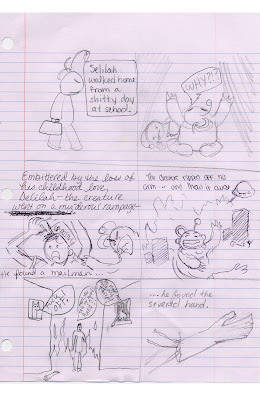 Delilah
walked home
from a
shitty day
at school.
WHY?!?
Embittered by the loss of
his childhood love,
Delilah – the creature
went on a murderous rampage –
The creature ripped off his
arm ... and threw it away
He found a mailman ...
... he found the
severed hand.